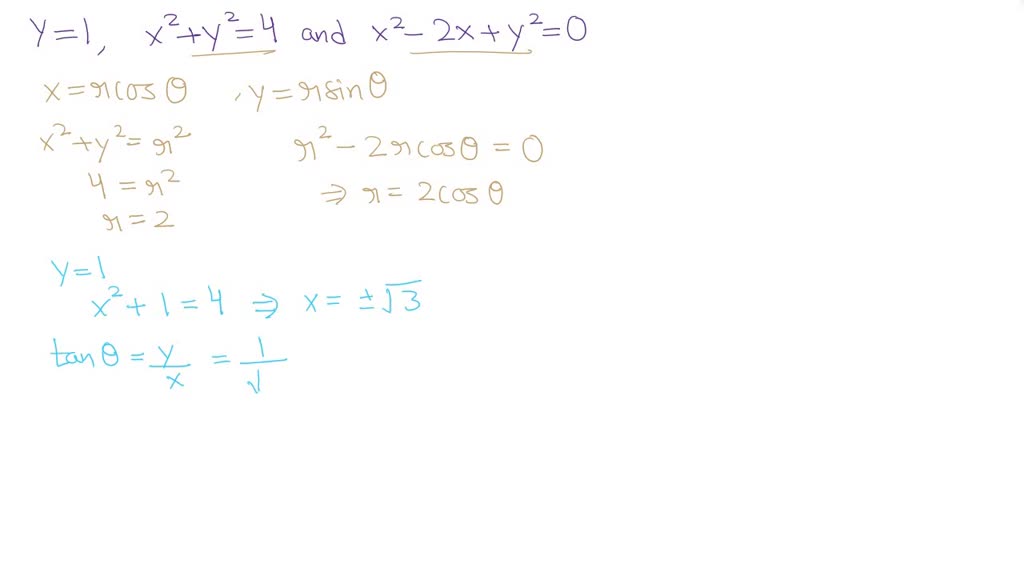 y=1, x²+y²=4 and x²-2x+y²=0
x=rcosθ , y=rsinθ
x²+y²=r²
4=r²
r=2
r²-2rcosθ=0
⇒ r=2cosθ
y=1
x²+1=4 ⇒ x=±√3
tanθ=y/x=1/√